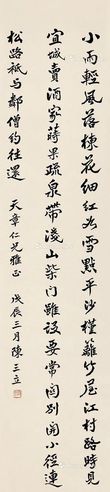 小雨輕風落楝花細紅如雪點平沙槿籬竹屋江村路時見
宜城賣酒家蒔果疏泉帶淺山柴門雖設要常關別開小徑連
松路祗與鄰僧約往還
天章仁兄雅正 戊辰三月陳三立